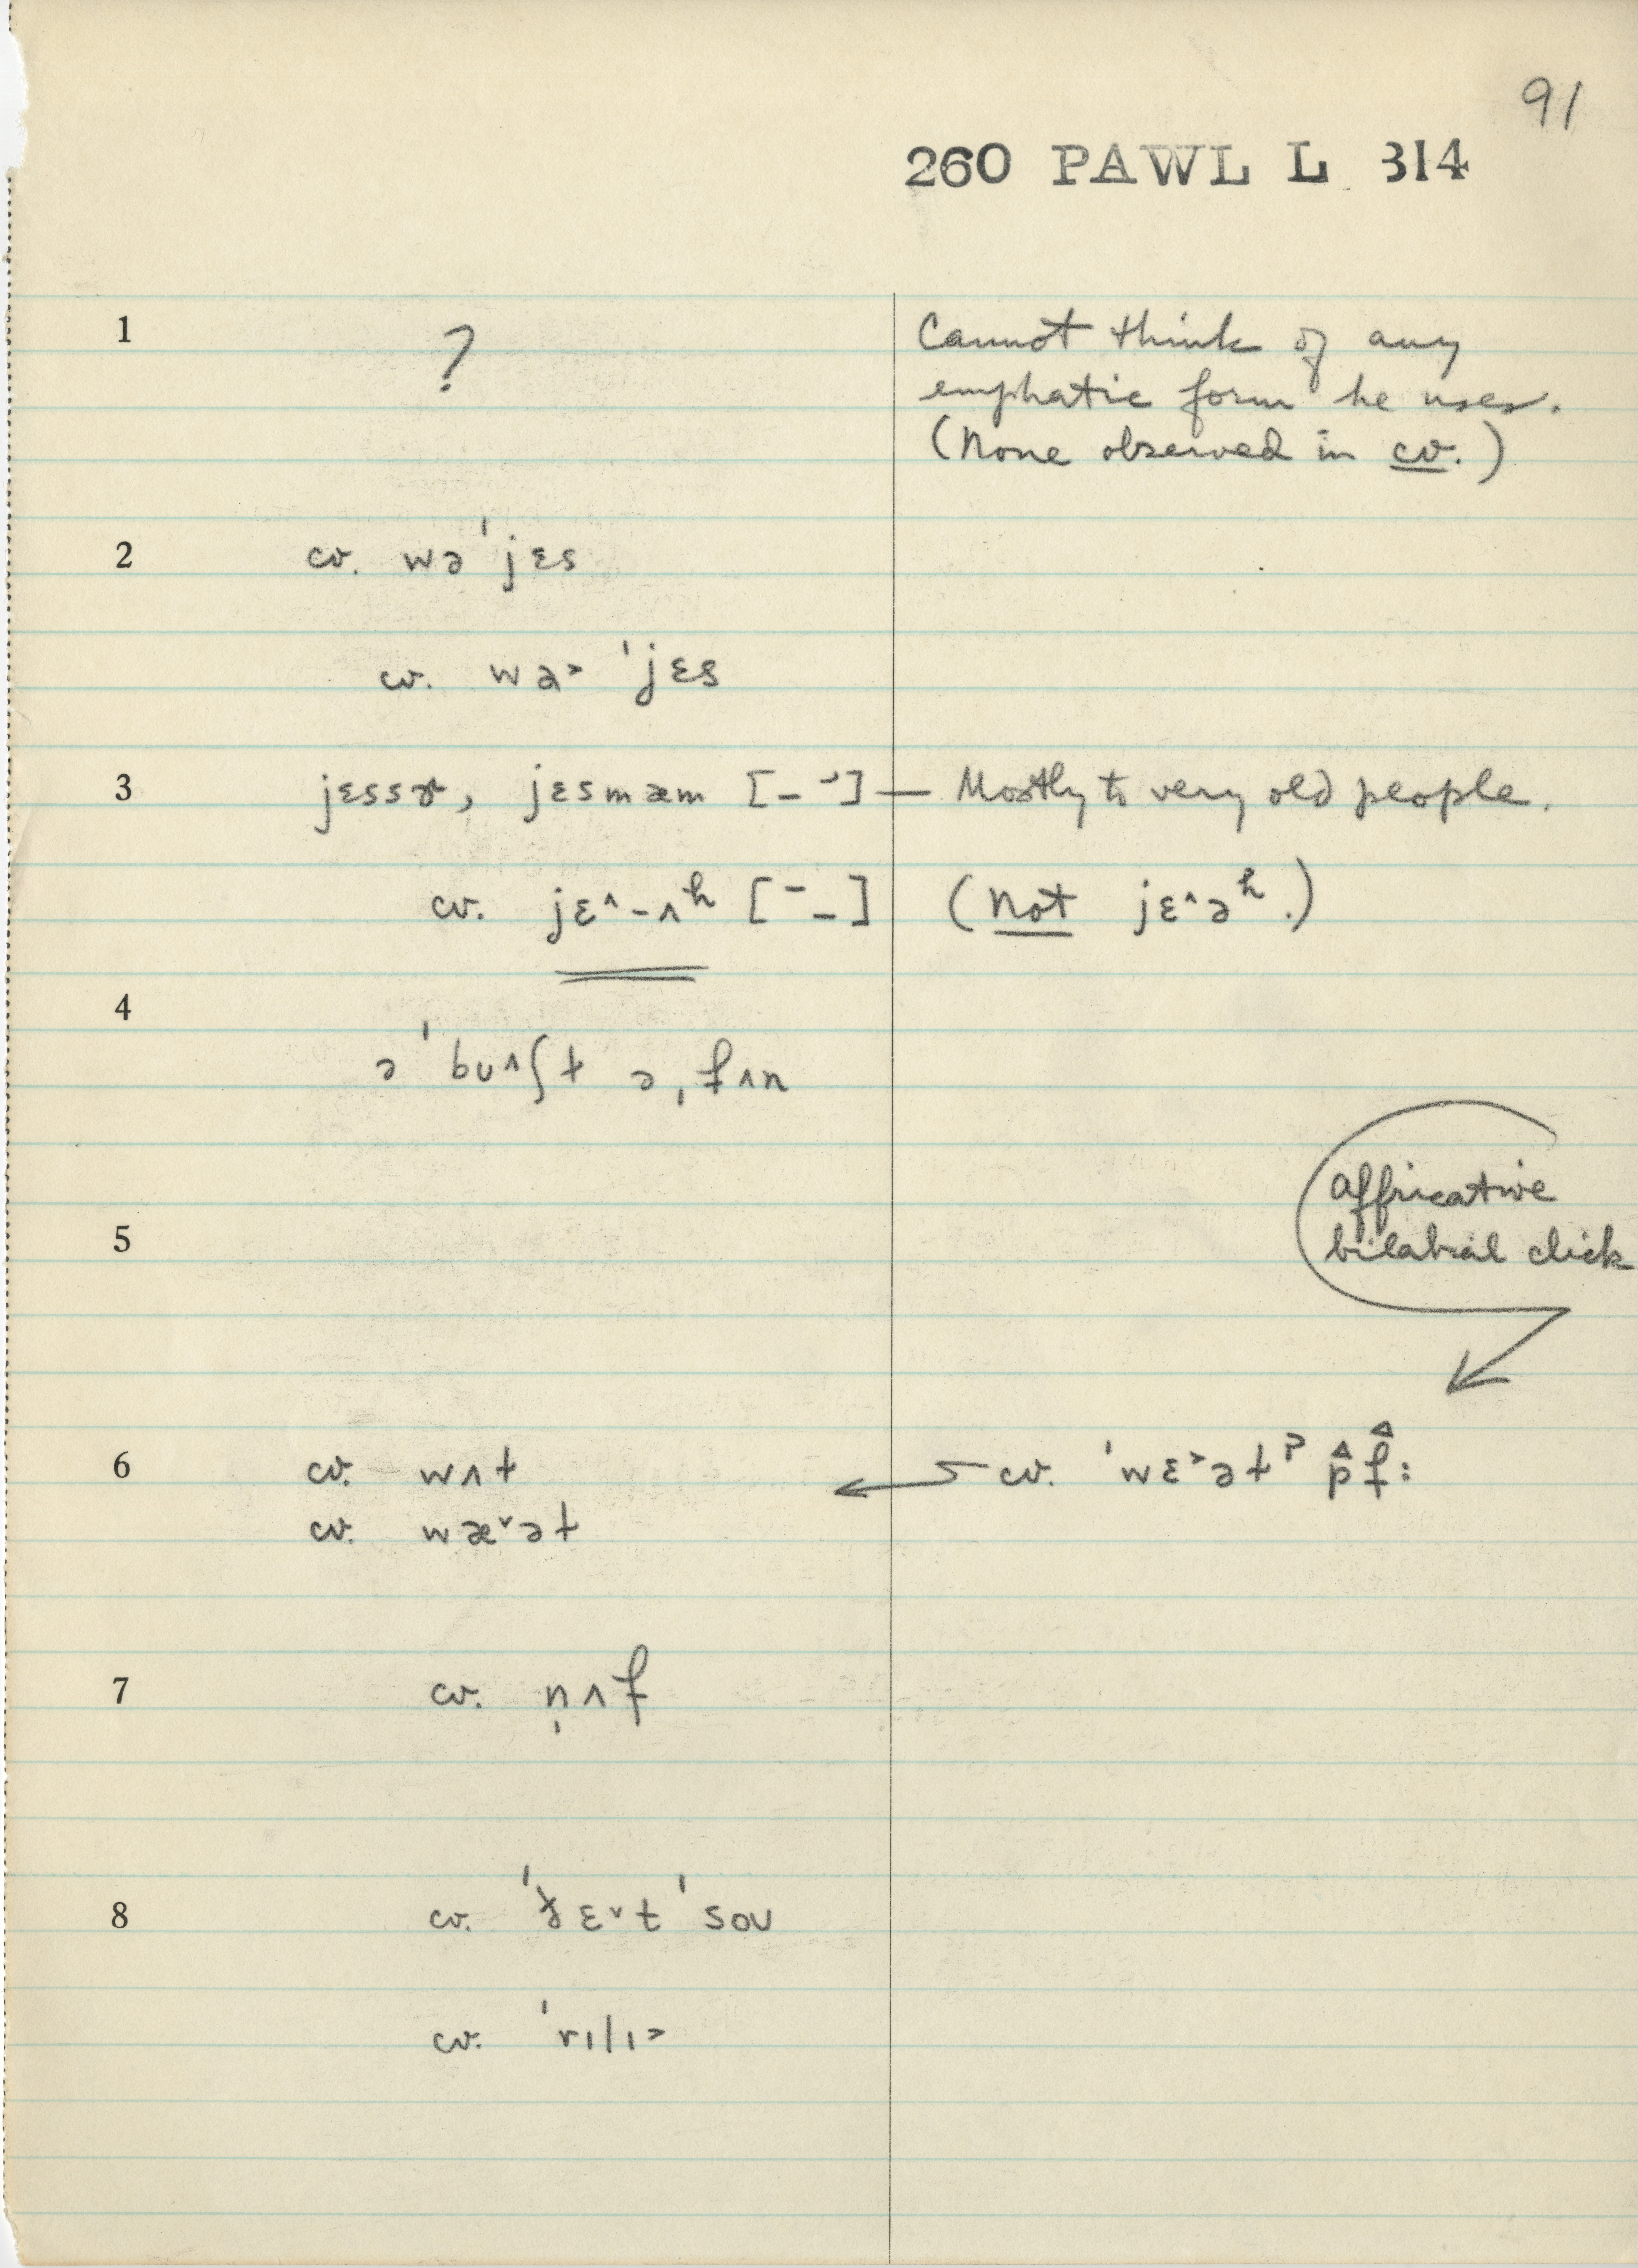 91
260 PAWL L 314
1 ? Cannot think of any
emphatic form he uses.
(None observed in cv.)
2 cv. wə ˈjɛs
cv. wə˃ ˈjɛs
3 jɛssɚ, jɛsmæm — Mostly to very old people.
cv. jɛ^-ʌʰ [¯_] (Not jɛ^əʰ.)
4
ə ˈbʊ^ʃt ə ˌfʌn
affricative
5
bilabial click
6 cv. wʌt cv. ˈwɛ˃ətᵖ p̂f̂:
cv. wæ˅ət
7 cv. n̩ʌf
8 cv. ɛ˅t ˈsoʊ
cv. ˈrɪlɪ˃